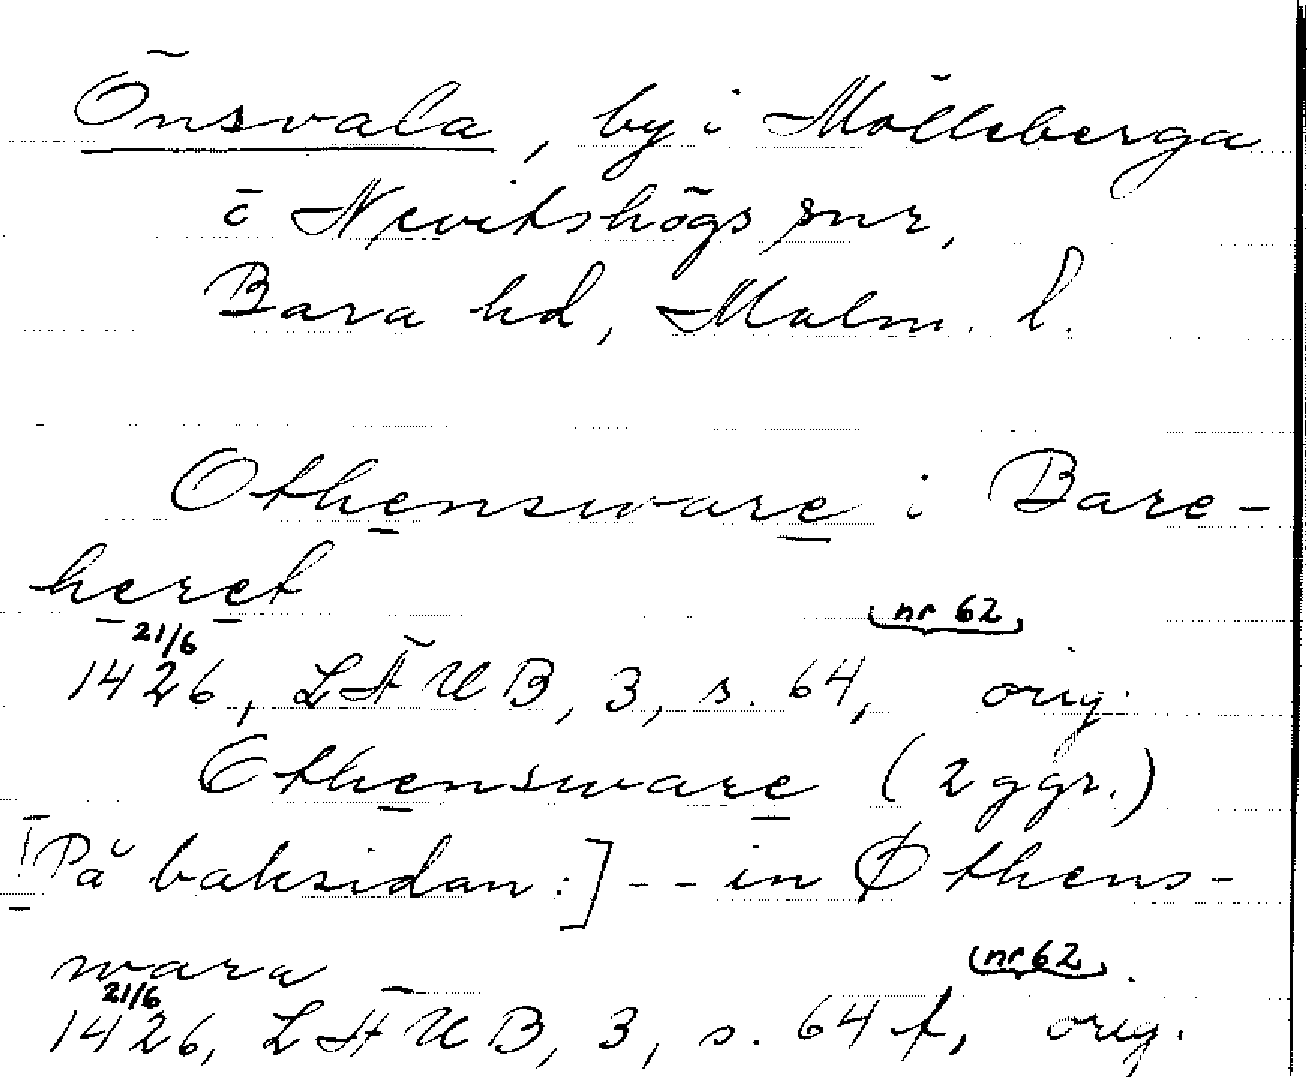 Önsvala, by i Mölleberga
o Nevitshögs snr,
Bara hd, Malm. l.
Othensware i Bare-
heret
21/6 nr 62
1426, LÄUB, 3, s. 64, orig.
Othensware (2 ggr.)
[På baksidan:] -- in Øthens-
wara
21/6 nr 62
1426, LÄUB, 3, s. 64 f, orig.